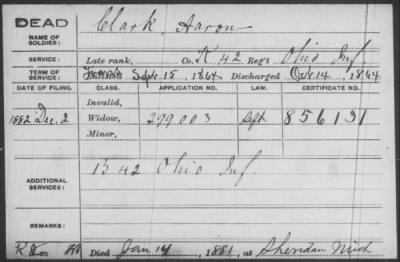 DEAD
NAME OF SOLDIER: Clark, Aaron
SERVICE: Late rank, Co. K 42 Reg't Ohio Inf.
TERM OF SERVICE: Sept. 15, 1864 Discharged Oct 14, 1864
DATE OF FILING. CLASS. APPLICATION NO. LAW. CERTIFICATE NO.
Invalid,
1882 Dec. 2 Widow, 299003 856131
Minor,
ADDITIONAL SERVICES: B 42 Ohio Inf
REMARKS:
Died Jan 14, 1881, at Sheridan Mich